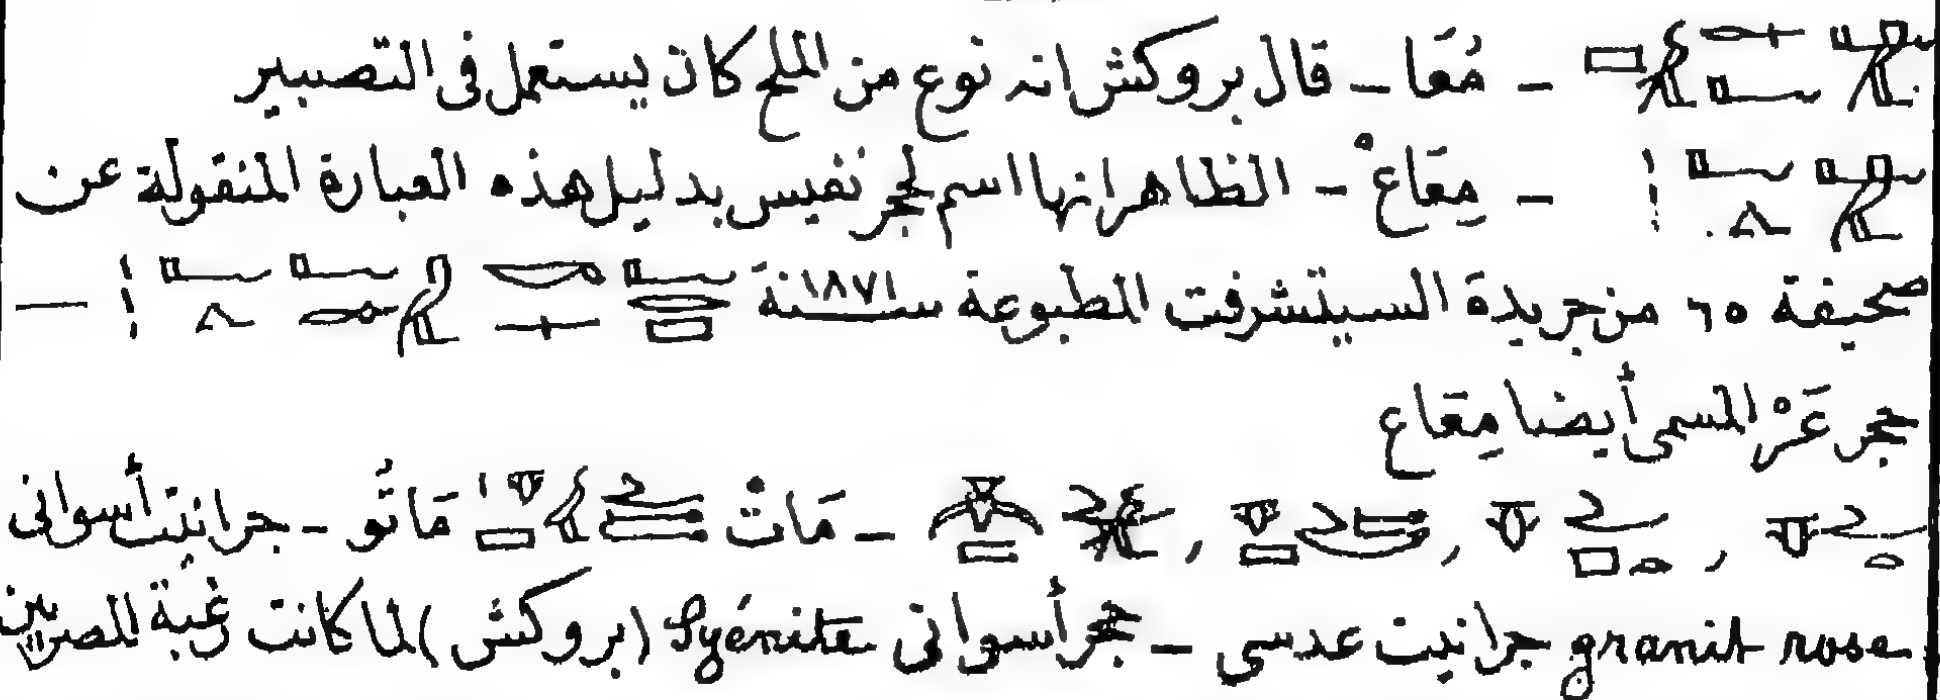 ـ مُعَا ـ قال بروكش انه نوع من الملح كان يستعمل فى التصبير
ـ مِعَاعْ ـ الظاهر انها اسم لحجر نفيس بدليل هذه العبارة المنقولة عن
صحيفة ٦٥ من جريدة السيتشرفت المطبوعة سنة ١٨٧١ —
حجر عَرْ المسمى أيضا مِعَاع
, , , ـ مَاتْ مَاتُو ـ جرانيت أسوانى
granit rose جرانيت عدسى ـ حجر أسوانى Syénite (بروكش) لما كانت رغبة المصريين